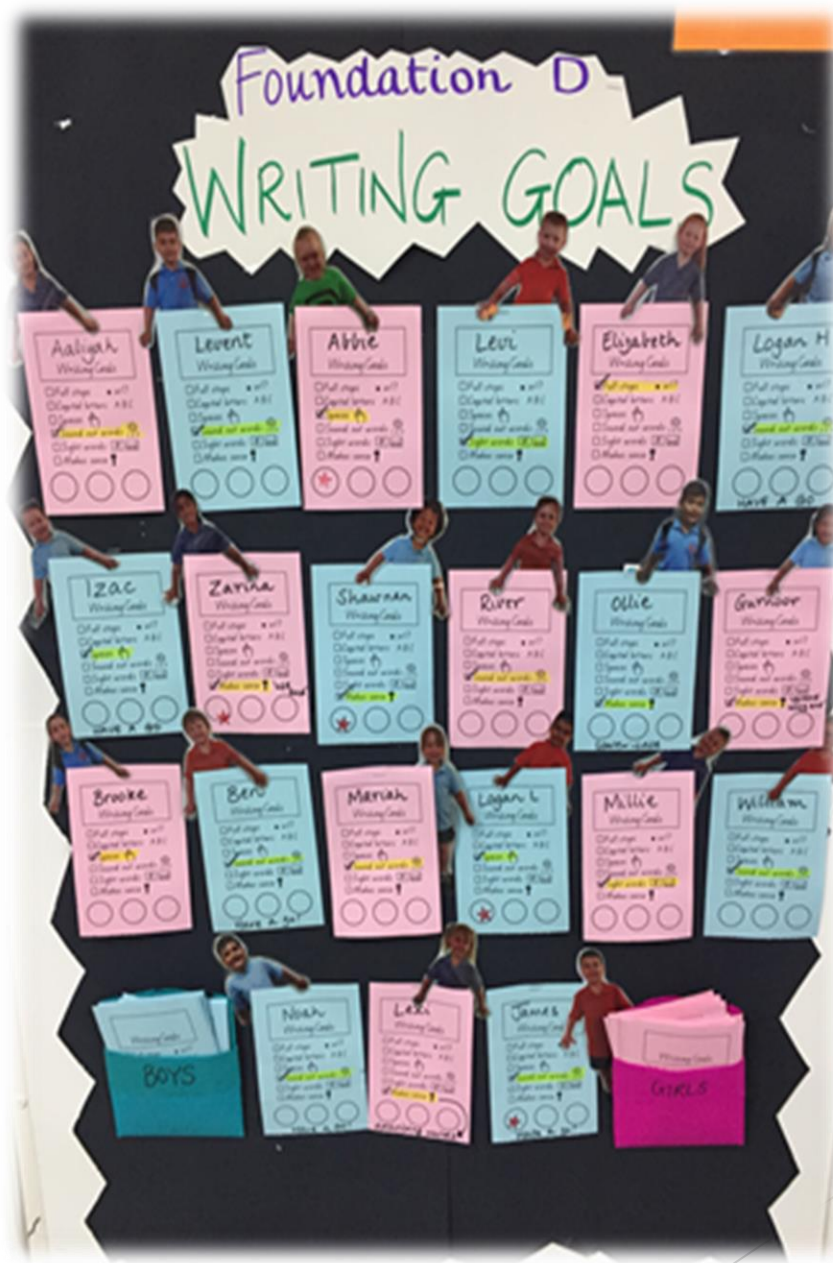 Foundation D
WRITING GOALS
Aaliyah
Writing Goals
Full stops
Capital letters ABC
Spaces
Sound out words
Sight words
Makes sense !
Levent
Writing Goals
Full stops
Capital letters ABC
Spaces
Sound out words
Sight words
Makes sense !
Abbie
Writing Goals
Full stops
Capital letters ABC
Spaces
Sound out words
Sight words
Makes sense !
Levi
Writing Goals
Full stops
Capital letters ABC
Spaces
Sound out words
Sight words
Makes sense !
Elizabeth
Writing Goals
Full stops
Capital letters ABC
Spaces
Sound out words
Sight words
Makes sense !
Logan H
Writing Goals
Full stops
Capital letters ABC
Spaces
Sound out words
Sight words
Makes sense !
HAVE A GO
Izac
Writing Goals
Full stops
Capital letters ABC
Spaces
Sound out words
Sight words
Makes sense !
HAVE A GO
Zarina
Writing Goals
Full stops
Capital letters ABC
Spaces
Sound out words
Sight words
Makes sense !
Shawnan
Writing Goals
Full stops
Capital letters ABC
Spaces
Sound out words
Sight words
Makes sense !
River
Writing Goals
Full stops
Capital letters ABC
Spaces
Sound out words
Sight words
Makes sense !
Ollie
Writing Goals
Full stops
Capital letters ABC
Spaces
Sound out words
Sight words
Makes sense !
Gurnoor
Writing Goals
Full stops
Capital letters ABC
Spaces
Sound out words
Sight words
Makes sense !
Brooke
Writing Goals
Full stops
Capital letters ABC
Spaces
Sound out words
Sight words
Makes sense !
Ben
Writing Goals
Full stops
Capital letters ABC
Spaces
Sound out words
Sight words
Makes sense !
Have a go!
Mariah
Writing Goals
Full stops
Capital letters ABC
Spaces
Sound out words
Sight words
Makes sense !
Logan L
Writing Goals
Full stops
Capital letters ABC
Spaces
Sound out words
Sight words
Makes sense !
Millie
Writing Goals
Full stops
Capital letters ABC
Spaces
Sound out words
Sight words
Makes sense !
William
Writing Goals
Full stops
Capital letters ABC
Spaces
Sound out words
Sight words
Makes sense !
BOYS
Noah
Writing Goals
Full stops
Capital letters ABC
Spaces
Sound out words
Sight words
Makes sense !
Have a go!
Lexi
Writing Goals
Full stops
Capital letters ABC
Spaces
Sound out words
Sight words
Makes sense !
James
Writing Goals
Full stops
Capital letters ABC
Spaces
Sound out words
Sight words
Makes sense !
Have a go!
Writing Goals
GIRLS